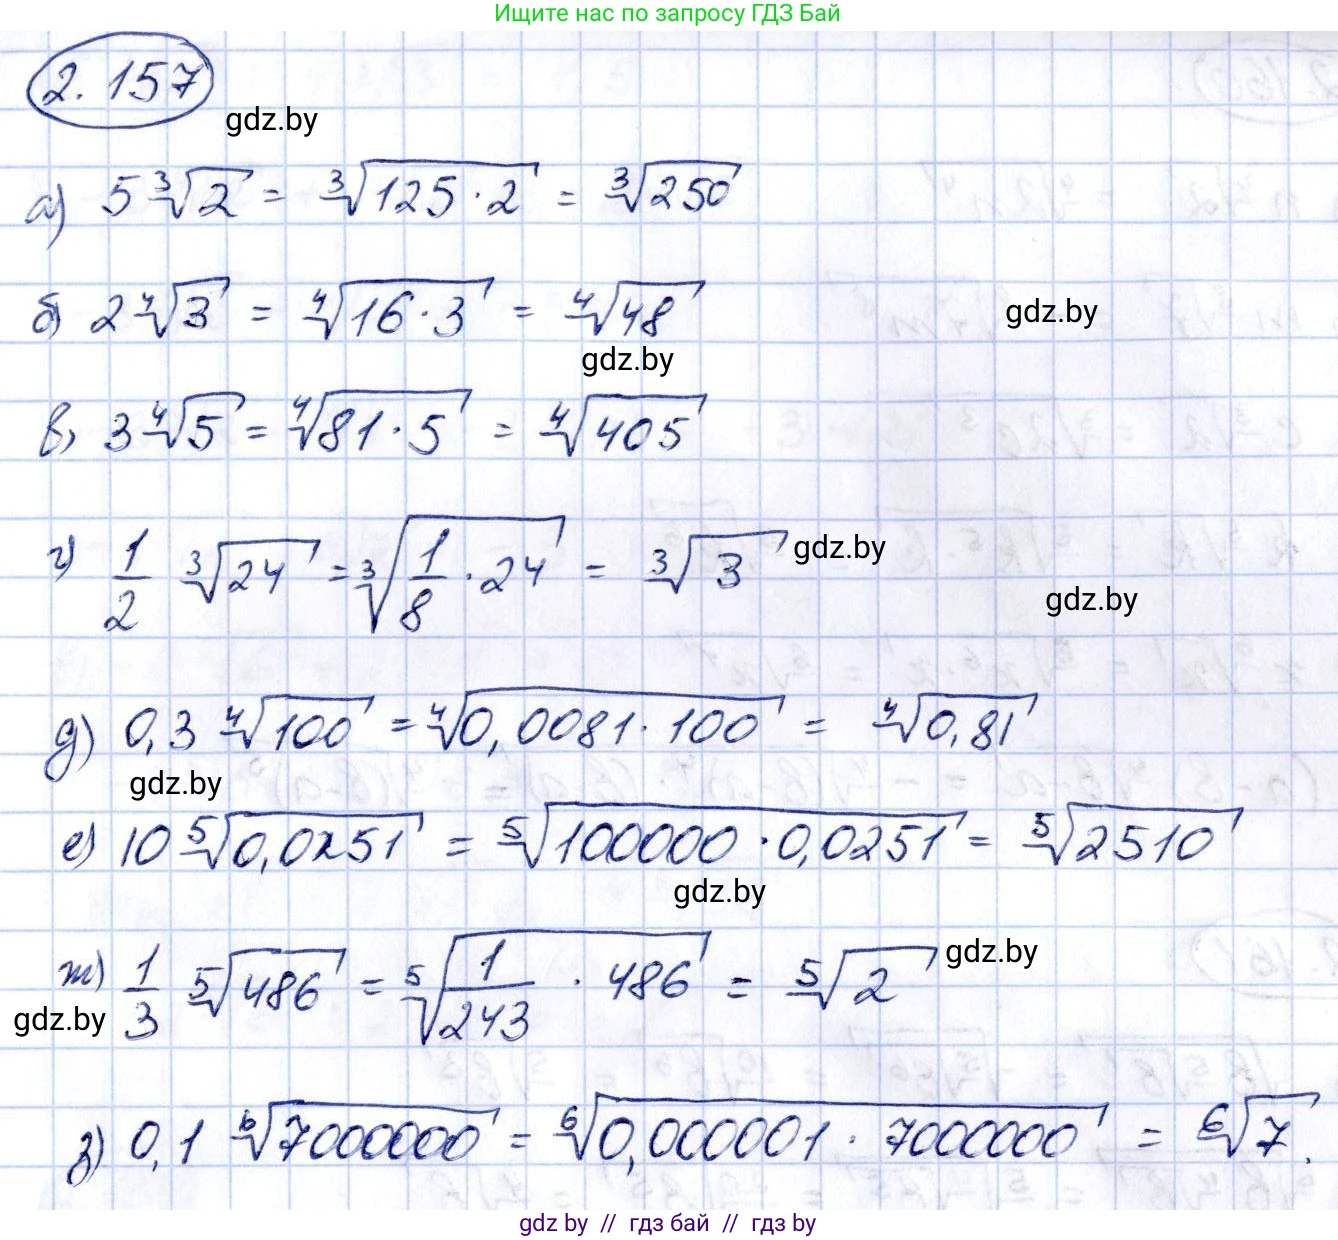 Ищите нас по запросу ГДЗ Бай
2.157
gdz.by
а) 5∛2 = ∛(125·2) = ∛250
б) 2∜3 = ∜(16·3) = ∜48
gdz.by
gdz.by
в) 3∜5 = ∜(81·5) = ∜405
г) 1/2 ∛24 = ∛(1/8·24) = ∛3
gdz.by
gdz.by
д) 0,3 ∜100 = ∜(0,0081·100) = ∜0,81
gdz.by
е) 10 ⁵√0,0251 = ⁵√(100000·0,0251) = ⁵√2510
gdz.by
ж) 1/3 ⁵√486 = ⁵√(1/243 · 486) = ⁵√2
gdz.by
gdz.by
з) 0,1 ⁶√7000000 = ⁶√(0,000001 · 7000000) = ⁶√7.
gdz by // гдз бай // гдз by